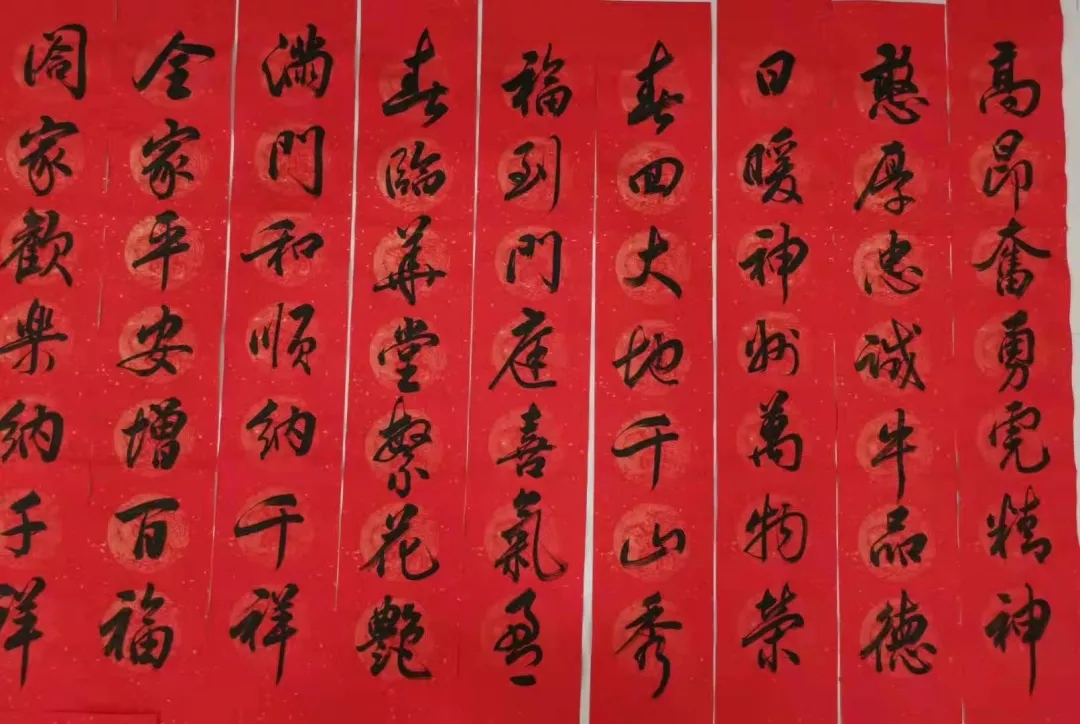 高昂奮勇虎精神
憨厚忠誠牛品德
日暖神州萬物榮
春回大地千山秀
福到門庭喜氣盈
春臨華堂繁花艷
滿門和順納千祥
全家平安增百福
閤家歡樂納千祥